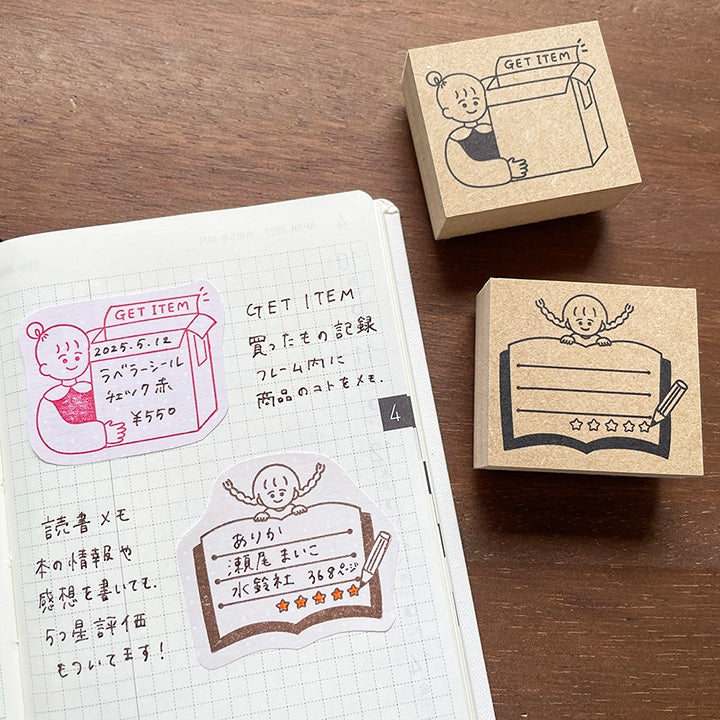 GET ITEM
GET ITEM
2025.5.12
ラベラーシール
チェック 赤
¥550
GET ITEM
買ったもの記録
フレーム内に
商品のコトをメモ.
4
読書メモ
本の情報や
感想を書いても.
5つ星評価
もついてます!
ありか
瀬尾 まいこ
水鈴社 368ページ